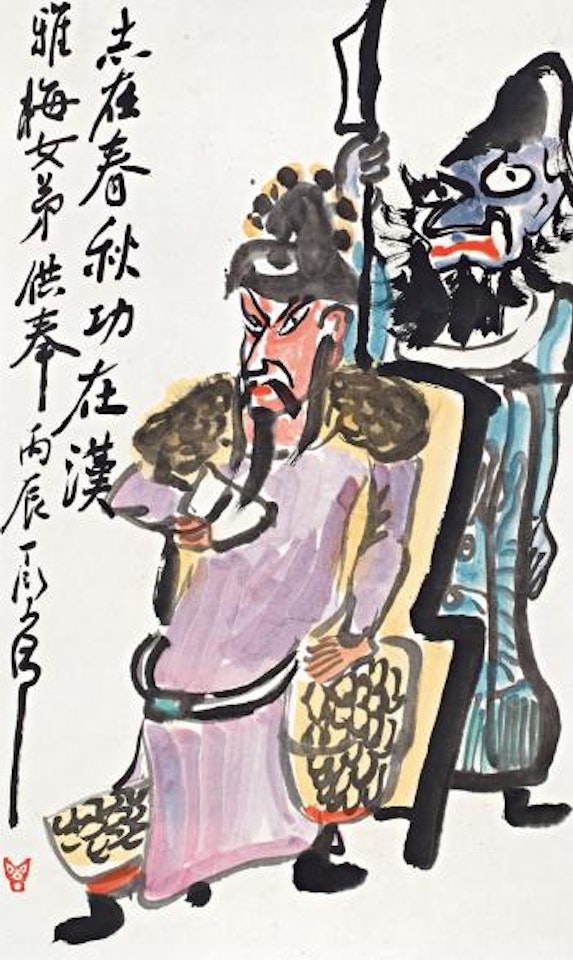 志在春秋功在漢
雅梅女弟供奉 丙辰 丁衍庸